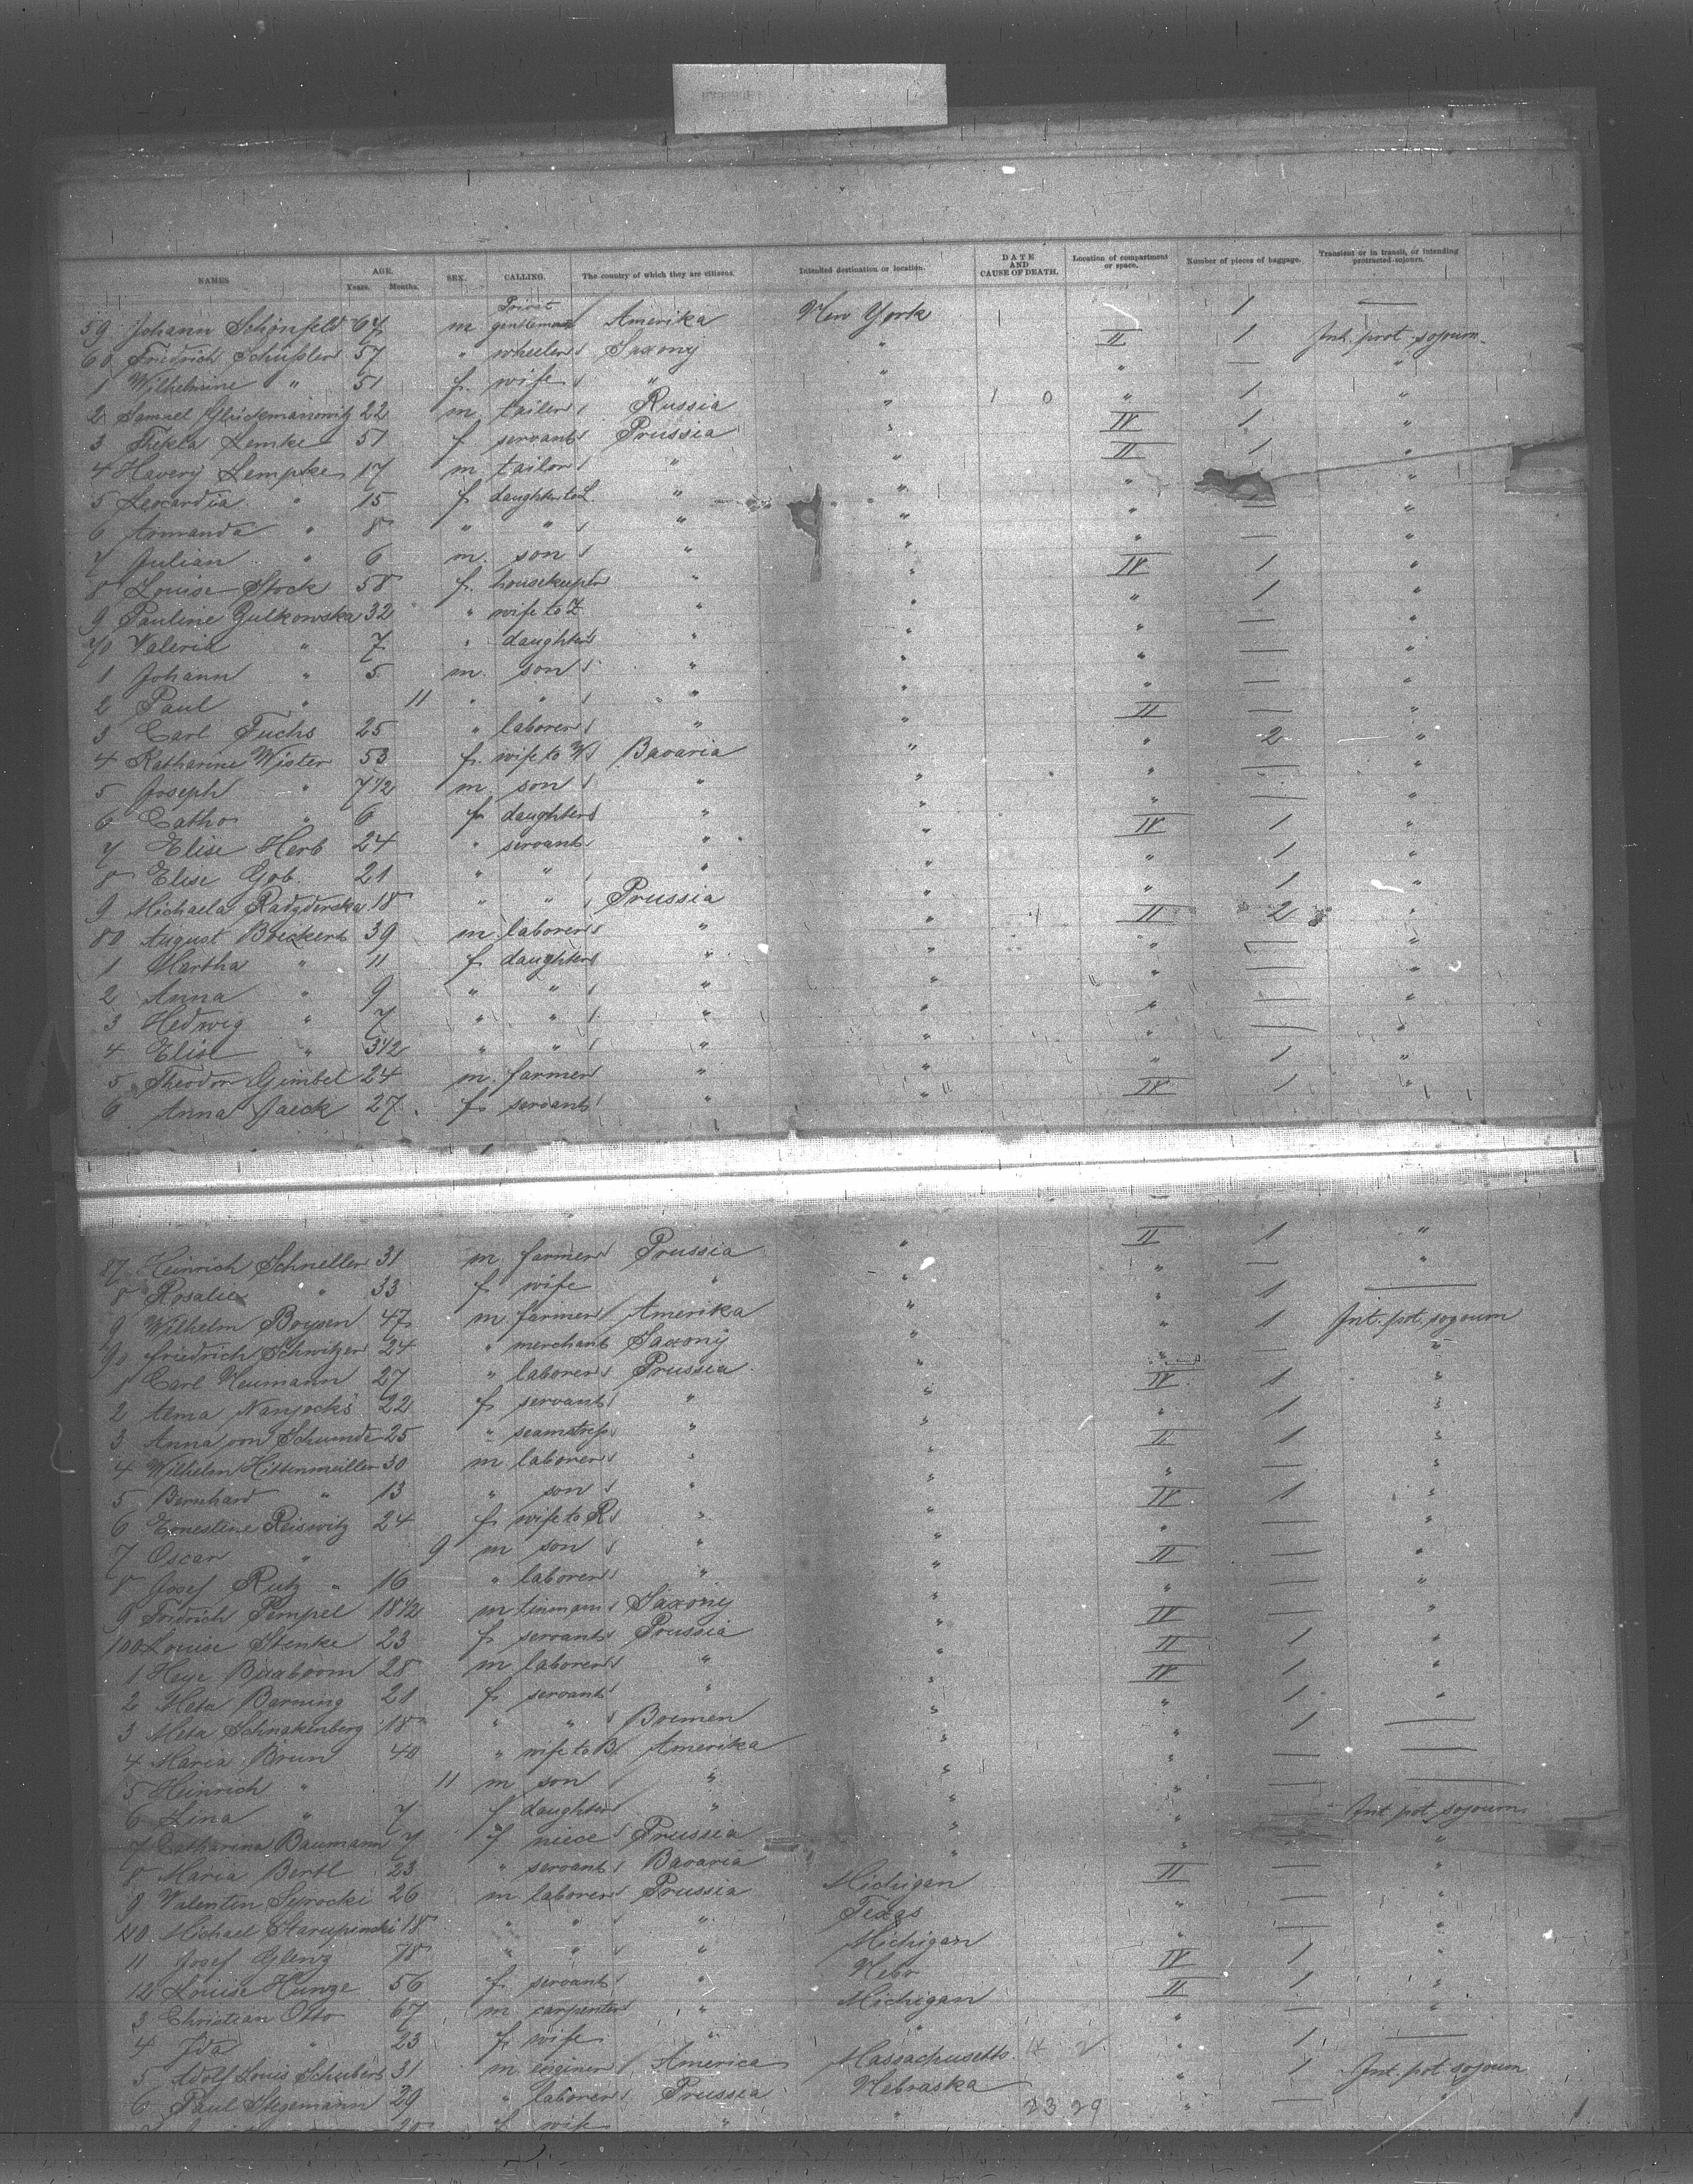 NAMES AGE. Years. Months. SEX. CALLING. The country of which they are citizens. Intended destination or location. DATE AND CAUSE OF DEATH. Location of compartment or space. Number of pieces of baggage. Transient or in transit, or intending protracted sojourn.
59 Johann Schönfeld 64 m Privat gentleman Amerika New York 1 —
60 Friedrich Schüßler 57 " wheeler Saxony " II 1 Int. prot. sojourn.
1 Wilhelmine " 51 f. wife " " " — "
2 Samuel Glückmanowitz 22 m. tailor Russia " " 1 "
3 Thekla Lemke 51 f servant Prussia " IV 1 "
4 Lempke 17 m tailor " " II 1 "
5 Leocardia " 15 f. daughter to L. " " " "
6 Armanda " 8 " " " " " — "
7 Julian " 6 m. son " " " — "
8 Louise Stock 58 f. housekeeper " " IV 1 "
9 Pauline Zulkowska 32 " wife to Z. " " " 1 "
70 Valeria " 7 " daughter " " " — "
1 Johann " 5 m. son " " " — "
2 Paul " 11 " " " " " — "
3 Carl Fuchs 25 " laborer " " II — "
4 Katharine Wister 53 f. wife to W. Bavaria " " 2 "
5 Joseph " 7 1/2 m. son " " " — "
6 Catho " 6 f. daughter " " " — "
7 Elise Herb 24 " servant " " IV 1 "
8 Elise Gob. 21 " " " " " 1 "
9 Michaela 18 " " Prussia " " 1 "
80 August Boeckert 39 m laborer " " II 2 "
1 Martha " 11 f daughter " " " — "
2 Anna " 9 " " " " " — "
3 Hedwig " 7 " " " " " — "
4 Elise " 3 1/2 " " " " " — "
5 Theodor Gimbel 24 m. farmer " " " 1 "
6 Anna Jaeck 27 f. servant " " IV 1 "
87 Heinrich Schneller 31 m farmer Prussia " II 1 "
8 Rosalie " 33 f. wife " " " — "
9 Wilhelm Boysen 47 m. farmer Amerika " " 1 —
90 Friedrich Schwitzer 24 " merchant Saxony " " 1 Int. prt. sojourn
1 Carl Neumann 27 " laborer Prussia " " — "
2 Alma 22 f servant " " IV 1 "
3 Anna von 25 " seamstress " " " 1 "
4 Wilhelm 30 m laborer " " II 1 "
5 Bernhard " 13 " son " " " — "
6 Ernestine Reiswitz 24 f. wife to R " " IV 1 "
7 Oscar " 9 m son " " " — "
8 Josef Rutz 16 " laborer " " II — "
9 Fridrich Pempel 18 1/2 m Saxony " " — "
100 Louise Stenke 23 f. servant Prussia " IV — "
1 Heye Buxboom 28 m laborer " " II 1 "
2 Meta Barning 21 f. servant " " IV 1 "
3 Meta Schnakenberg 18 " " Bremen " " 1 "
4 Maria Brun 40 " wife to B. Amerika " " 1 —
5 Heinrich " 11 m son " " " — —
6 Lina " 7 f daughter " " " — —
7 Catharina Baumann 7 f niece Prussia " " Int. prt. sojourn.
8 Maria Bertl 23 " servant Bavaria " " "
9 Valentin 26 m laborer Prussia Michigan II — "
110 Michael 18 " " " Texas " — "
11 Josef Glenz 18 " " " Michigan " — "
12 Louise Hunze 56 f. servant " Nebr. IV 1 "
3 Christian Otto 67 m carpenter " Michigan II 1 "
4 Ida " 23 f. wife " " " — "
5 Adolf Louis Schubert 31 m enginer America Massachusetts " 1 —
6 Paul Stegemann 29 " laborer Prussia Nebraska " 1 Int. prt. sojourn
f. wife " " 2329 " — "